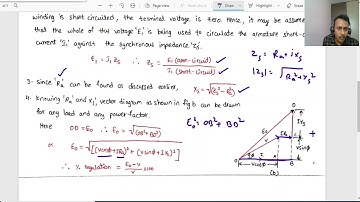 winding is short circuited, the terminal voltage is zero. Hence, it may be assumed
that the whole of the voltage 'E₁' is being used to circulate the armature short-circuit
current 'I₁' against the synchronous impedance 'Zs'.
E₁ = I₁ Zs ∴ Zs = E₁ (open-circuit) / I₁ (short-circuit)
Zs = Ra + jXs
|Zs| = √Ra² + Xs²
3. Since 'Ra' can be found as discussed earlier, Xs = √(Zs² - Ra²)
4. Knowing 'Ra' and 'Xs', vector diagram as shown in fig b can be drawn
for any load and any power-factor.
E₀² = OB² + BD²
Here OD = E₀ ∴ E₀ = √(OB² + BD²)
or E₀ = √[(Vcosφ + IRa)² + (Vsinφ + IXs)²]
∴ % regulation = E₀ - V / V × 100
D
E₀
IXs
V
IRa
Vsinφ
O
I
Vcosφ
B
(b)